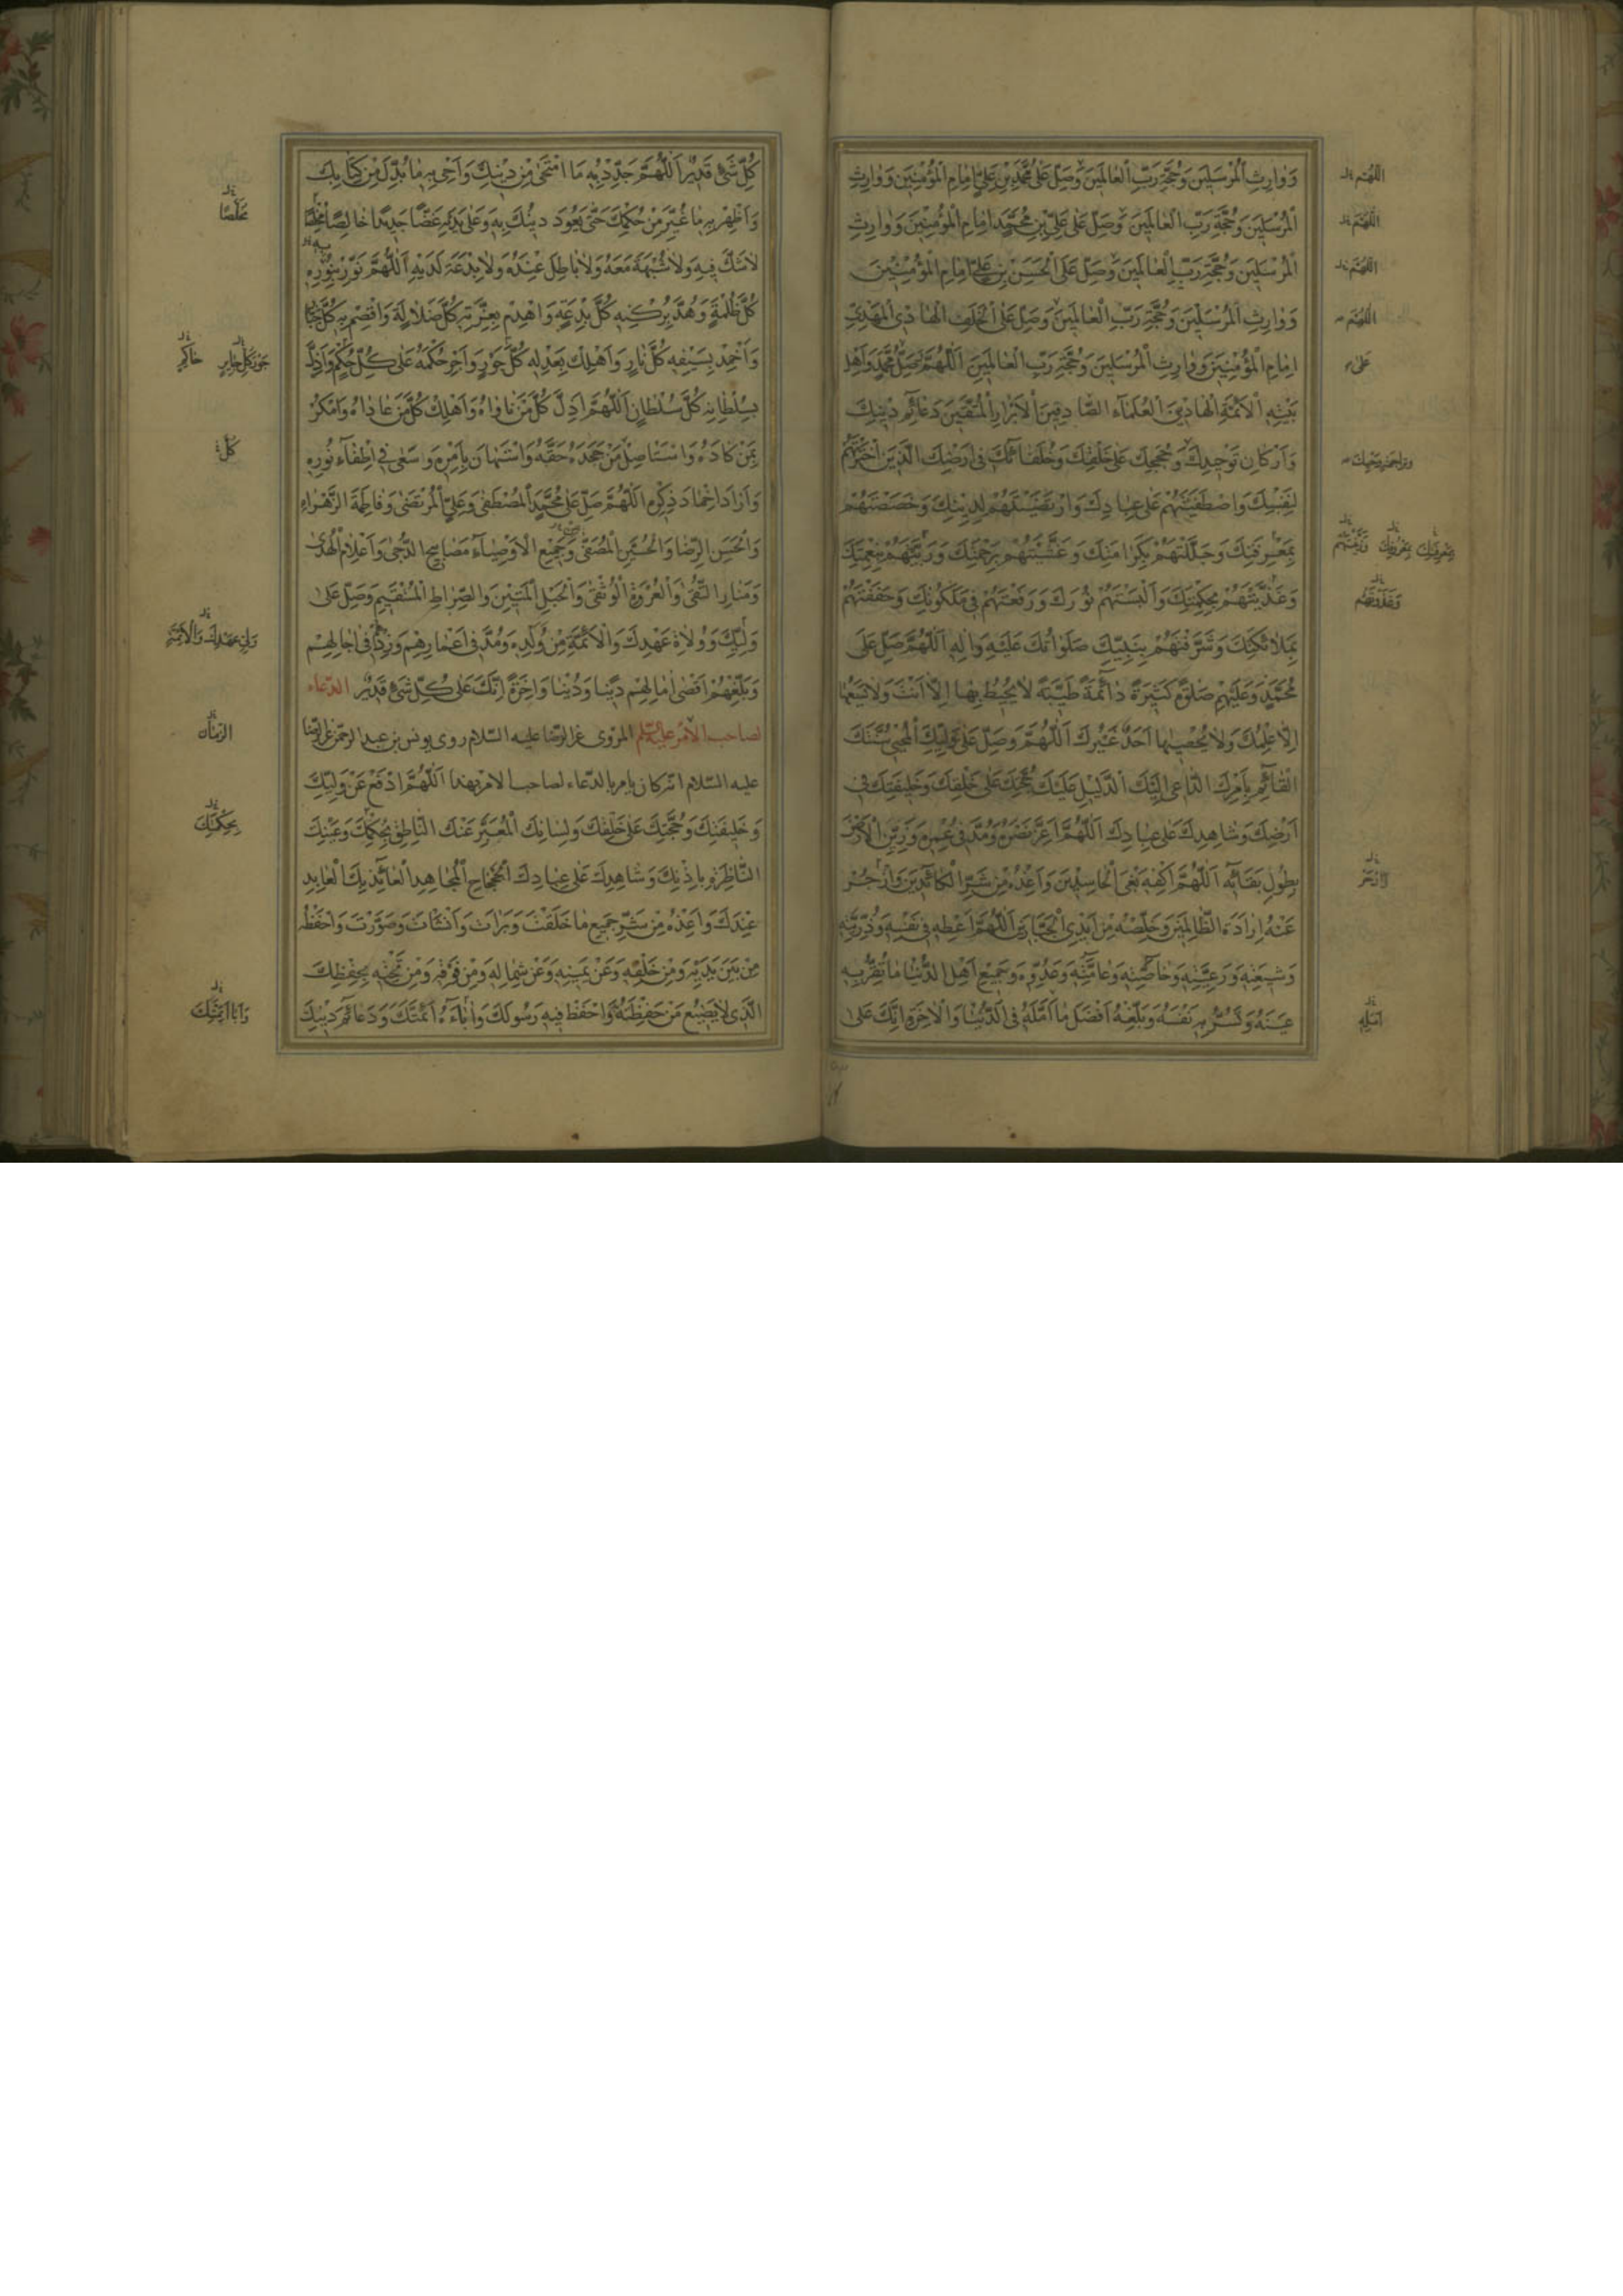 وَوارِثِ الْمُرْسَلينَ وَحُجَّةِ رَبِّ الْعالَمينَ وَصَلِّ عَلى مُحَمَّدِ بْنِ عَلِيٍّ اِمامِ الْمُؤْمِنينَ وَوارِثِ
الْمُرْسَلينَ وَحُجَّةِ رَبِّ الْعالَمينَ وَصَلِّ عَلى عَلِيِّ بْنِ مُحَمَّدٍ اِمامِ الْمُؤْمِنينَ وَوارِثِ
الْمُرْسَلينَ وَحُجَّةِ رَبِّ الْعالَمينَ وَصَلِّ عَلَى الْحَسَنِ بْنِ عَلِيٍّ اِمامِ الْمُؤْمِنينَ
وَوارِثِ الْمُرْسَلينَ وَحُجَّةِ رَبِّ الْعالَمينَ وَصَلِّ عَلَى الْخَلَفِ الْهادِي الْمَهْدِيِّ
اِمامِ الْمُؤْمِنينَ وَوارِثِ الْمُرْسَلينَ وَحُجَّةِ رَبِّ الْعالَمينَ اَللّهُمَّ صَلِّ مُحَمَّدٍ وَاَهْلِ
بَيْتِهِ الْاَئِمَّةِ الْهادينَ الْعُلَمآءِ الصّادِقينَ الْاَبْرارِ الْمُتَّقينَ دَعآئِمِ دينِكَ
وَاَرْكانِ تَوْحيدِكَ وَحُجَجِكَ عَلى خَلْقِكَ وَخُلَفآئِكَ فى اَرْضِكَ الَّذينَ اخْتَرْتَهُمْ
لِنَفْسِكَ وَاصْطَفَيْتَهُمْ عَلى عِبادِكَ وَارْتَضَيْتَهُمْ لِدينِكَ وَخَصَصْتَهُمْ
بِمَعْرِفَتِكَ وَجَلَّلْتَهُمْ بِكَرامَتِكَ وَغَشَّيْتَهُمْ بِرَحْمَتِكَ وَرَبَّيْتَهُمْ بِنِعْمَتِكَ
وَغَذَّيْتَهُمْ بِحِكْمَتِكَ وَاَلْبَسْتَهُمْ نُورَكَ وَرَفَعْتَهُمْ فى مَلَكُوتِكَ وَحَفَفْتَهُمْ
بِمَلائِكَتِكَ وَشَرَّفْتَهُمْ بِنَبِيِّكَ صَلَواتُكَ عَلَيْهِ وَالِهِ اَللّهُمَّ صَلِّ عَلى
مُحَمَّدٍ وَعَلَيْهِمْ صَلوةً كَثيرَةً دآئِمَةً طَيِّبَةً لا يُحيطُ بِها اِلّا اَنْتَ وَلا يَسَعُها
اِلّا عِلْمُكَ وَلا يُحْصيها اَحَدٌ غَيْرُكَ اَللّهُمَّ وَصَلِّ عَلى وَلِيِّكَ الْمُحْيي سُنَّتَكَ
الْقآئِمِ بِاَمْرِكَ الدّاعى اِلَيْكَ الدَّليلِ عَلَيْكَ حُجَّتِكَ عَلى خَلْقِكَ وَخَليفَتِكَ فى
اَرْضِكَ وَشاهِدِكَ عَلى عِبادِكَ اَللّهُمَّ اَعِزَّ نَصْرَهُ وَمُدَّ فى عُمْرِهِ وَزَيِّنِ الْاَرْضَ
بِطُولِ بَقآئِهِ اَللّهُمَّ اكْفِهِ بَغْيَ الْحاسِدينَ وَاَعِذْهُ مِنْ شَرِّ الْكآئِدينَ وَازْجُرْ
عَنْهُ اِرادَةَ الظّالِمينَ وَخَلِّصْهُ مِنْ اَيْدِي الْجَبّارينَ اَللّهُمَّ اَعْطِهِ فى نَفْسِهِ وَذُرِّيَّتِهِ
وَشيعَتِهِ وَرَعِيَّتِهِ وَخاصَّتِهِ وَعامَّتِهِ وَعَدُوِّهِ وَجَميعِ اَهْلِ الدُّنْيا ما تُقِرُّ بِهِ
عَيْنَهُ وَتَسُرُّ بِهِ نَفْسَهُ وَبَلِّغْهُ اَفْضَلَ ما اَمَّلَهُ فِى الدُّنْيا وَالْاخِرَةِ اِنَّكَ عَلى
اللّهُمَّ
اللّهُمَّ
اللّهُمَّ
اللّهُمَّ
عَلى
وَازْحَرْ
اَمَلِهِ
كُلِّ شَيْءٍ قَديرٌ اَللّهُمَّ جَدِّدْ بِهِ مَا امْتَحى مِنْ دينِكَ وَاَحْىِ بِهِ ما بُدِّلَ مِنْ كِتابِكَ
وَاَظْهِرْ بِهِ ما غُيِّرَ مِنْ حُكْمِكَ حَتّى يَعُودَ دينُكَ بِهِ وَعَلى يَدَيْهِ غَضًّا جَديدًا خالِصًا مُخْلَصًا
لا شَكَّ فيهِ وَلا شُبْهَةَ مَعَهُ وَلا باطِلَ عِنْدَهُ وَلا بِدْعَةَ لَدَيْهِ اَللّهُمَّ نَوِّرْ بِنُورِهِ
كُلَّ ظُلْمَةٍ وَهُدَّ بِرُكْنِهِ كُلَّ بِدْعَةٍ وَاهْدِمْ بِعِزَّتِهِ كُلَّ ضَلالَةٍ وَاقْصِمْ بِهِ كُلَّ جَبّارٍ
وَاَخْمِدْ بِسَيْفِهِ كُلَّ نارٍ وَاَهْلِكْ بِعَدْلِهِ كُلَّ جَوْرٍ وَاَجْرِ حُكْمَهُ عَلى كُلِّ حُكْمٍ وَاَذِلَّ
بِسُلْطانِهِ كُلَّ سُلْطانٍ اَللّهُمَّ اَذِلَّ كُلَّ مَنْ ناواهُ وَاَهْلِكْ كُلَّ مَنْ عاداهُ وَامْكُرْ
بِمَنْ كادَهُ وَاسْتَاْصِلْ مَنْ جَحَدَهُ حَقَّهُ وَاسْتَهانَ بِاَمْرِهِ وَسَعى فى اِطْفآءِ نُورِهِ
وَاَرادَ اِخْمادَ ذِكْرِهِ اَللّهُمَّ صَلِّ عَلى مُحَمَّدٍ الْمُصْطَفى وَعَلِيٍّ الْمُرْتَضى وَفاطِمَةَ الزَّهْرآءِ
وَالْحَسَنِ الرِّضا وَالْحُسَيْنِ الْمُصَفّى وَجَميعِ الْاَوْصِيآءِ مَصابيحِ الدُّجى وَاَعْلامِ الْهُدى
وَمَنارِ التُّقى وَالْعُرْوَةِ الْوُثْقى وَالْحَبْلِ الْمَتينِ وَالصِّراطِ الْمُسْتَقيمِ وَصَلِّ عَلى
وَلِيِّكَ وَوُلاةِ عَهْدِكَ وَالْاَئِمَّةِ مِنْ وُلْدِهِ وَمُدَّ فى اَعْمارِهِمْ وَزِدْ فى اجالِهِمْ
وَبَلِّغْهُمْ اَقْصى امالِهِمْ دينًا وَدُنْيا وَاخِرَةً اِنَّكَ عَلى كُلِّ شَيْءٍ قَديرٌ الدّعاء
لصاحب الأمر عليه السّلم المروى عن الرّضا عليه السّلام روى يونس بن عبد الرحمن عن الرّضا
عليه السّلام انّه كان يأمر بالدّعاء لصاحب الامر بهذا اَللّهُمَّ ادْفَعْ عَنْ وَلِيِّكَ
وَخَليفَتِكَ وَحُجَّتِكَ عَلى خَلْقِكَ وَلِسانِكَ الْمُعَبِّرِ عَنْكَ النّاطِقِ بِحُكْمِكَ وَعَيْنِكَ
النّاظِرَةِ بِاِذْنِكَ وَشاهِدِكَ عَلى عِبادِكَ الْجَحْجاحِ الْمُجاهِدِ الْعآئِذِ بِكَ الْعابِدِ
عِنْدَكَ وَاَعِذْهُ مِنْ شَرِّ جَميعِ ما خَلَقْتَ وَبَرَاْتَ وَاَنْشَاْتَ وَصَوَّرْتَ وَاحْفَظْهُ
مِنْ بَيْنِ يَدَيْهِ وَمِنْ خَلْفِهِ وَعَنْ يَمينِهِ وَعَنْ شِمالِهِ وَمِنْ فَوْقِهِ وَمِنْ تَحْتِهِ بِحِفْظِكَ
الَّذى لا يَضيعُ مَنْ حَفِظْتَهُ وَاحْفَظْ فيهِ رَسُولَكَ وَابآءَهُ اَئِمَّتَكَ وَدَعآئِمَ دينِكَ
مَحْضًا
جَوْرَ كُلِّ جابِرٍ
كُلَّ
وَلِىِّ عَهْدِكَ وَالْاَئِمَّةِ
الزّمان
بِحِكْمَتِكَ